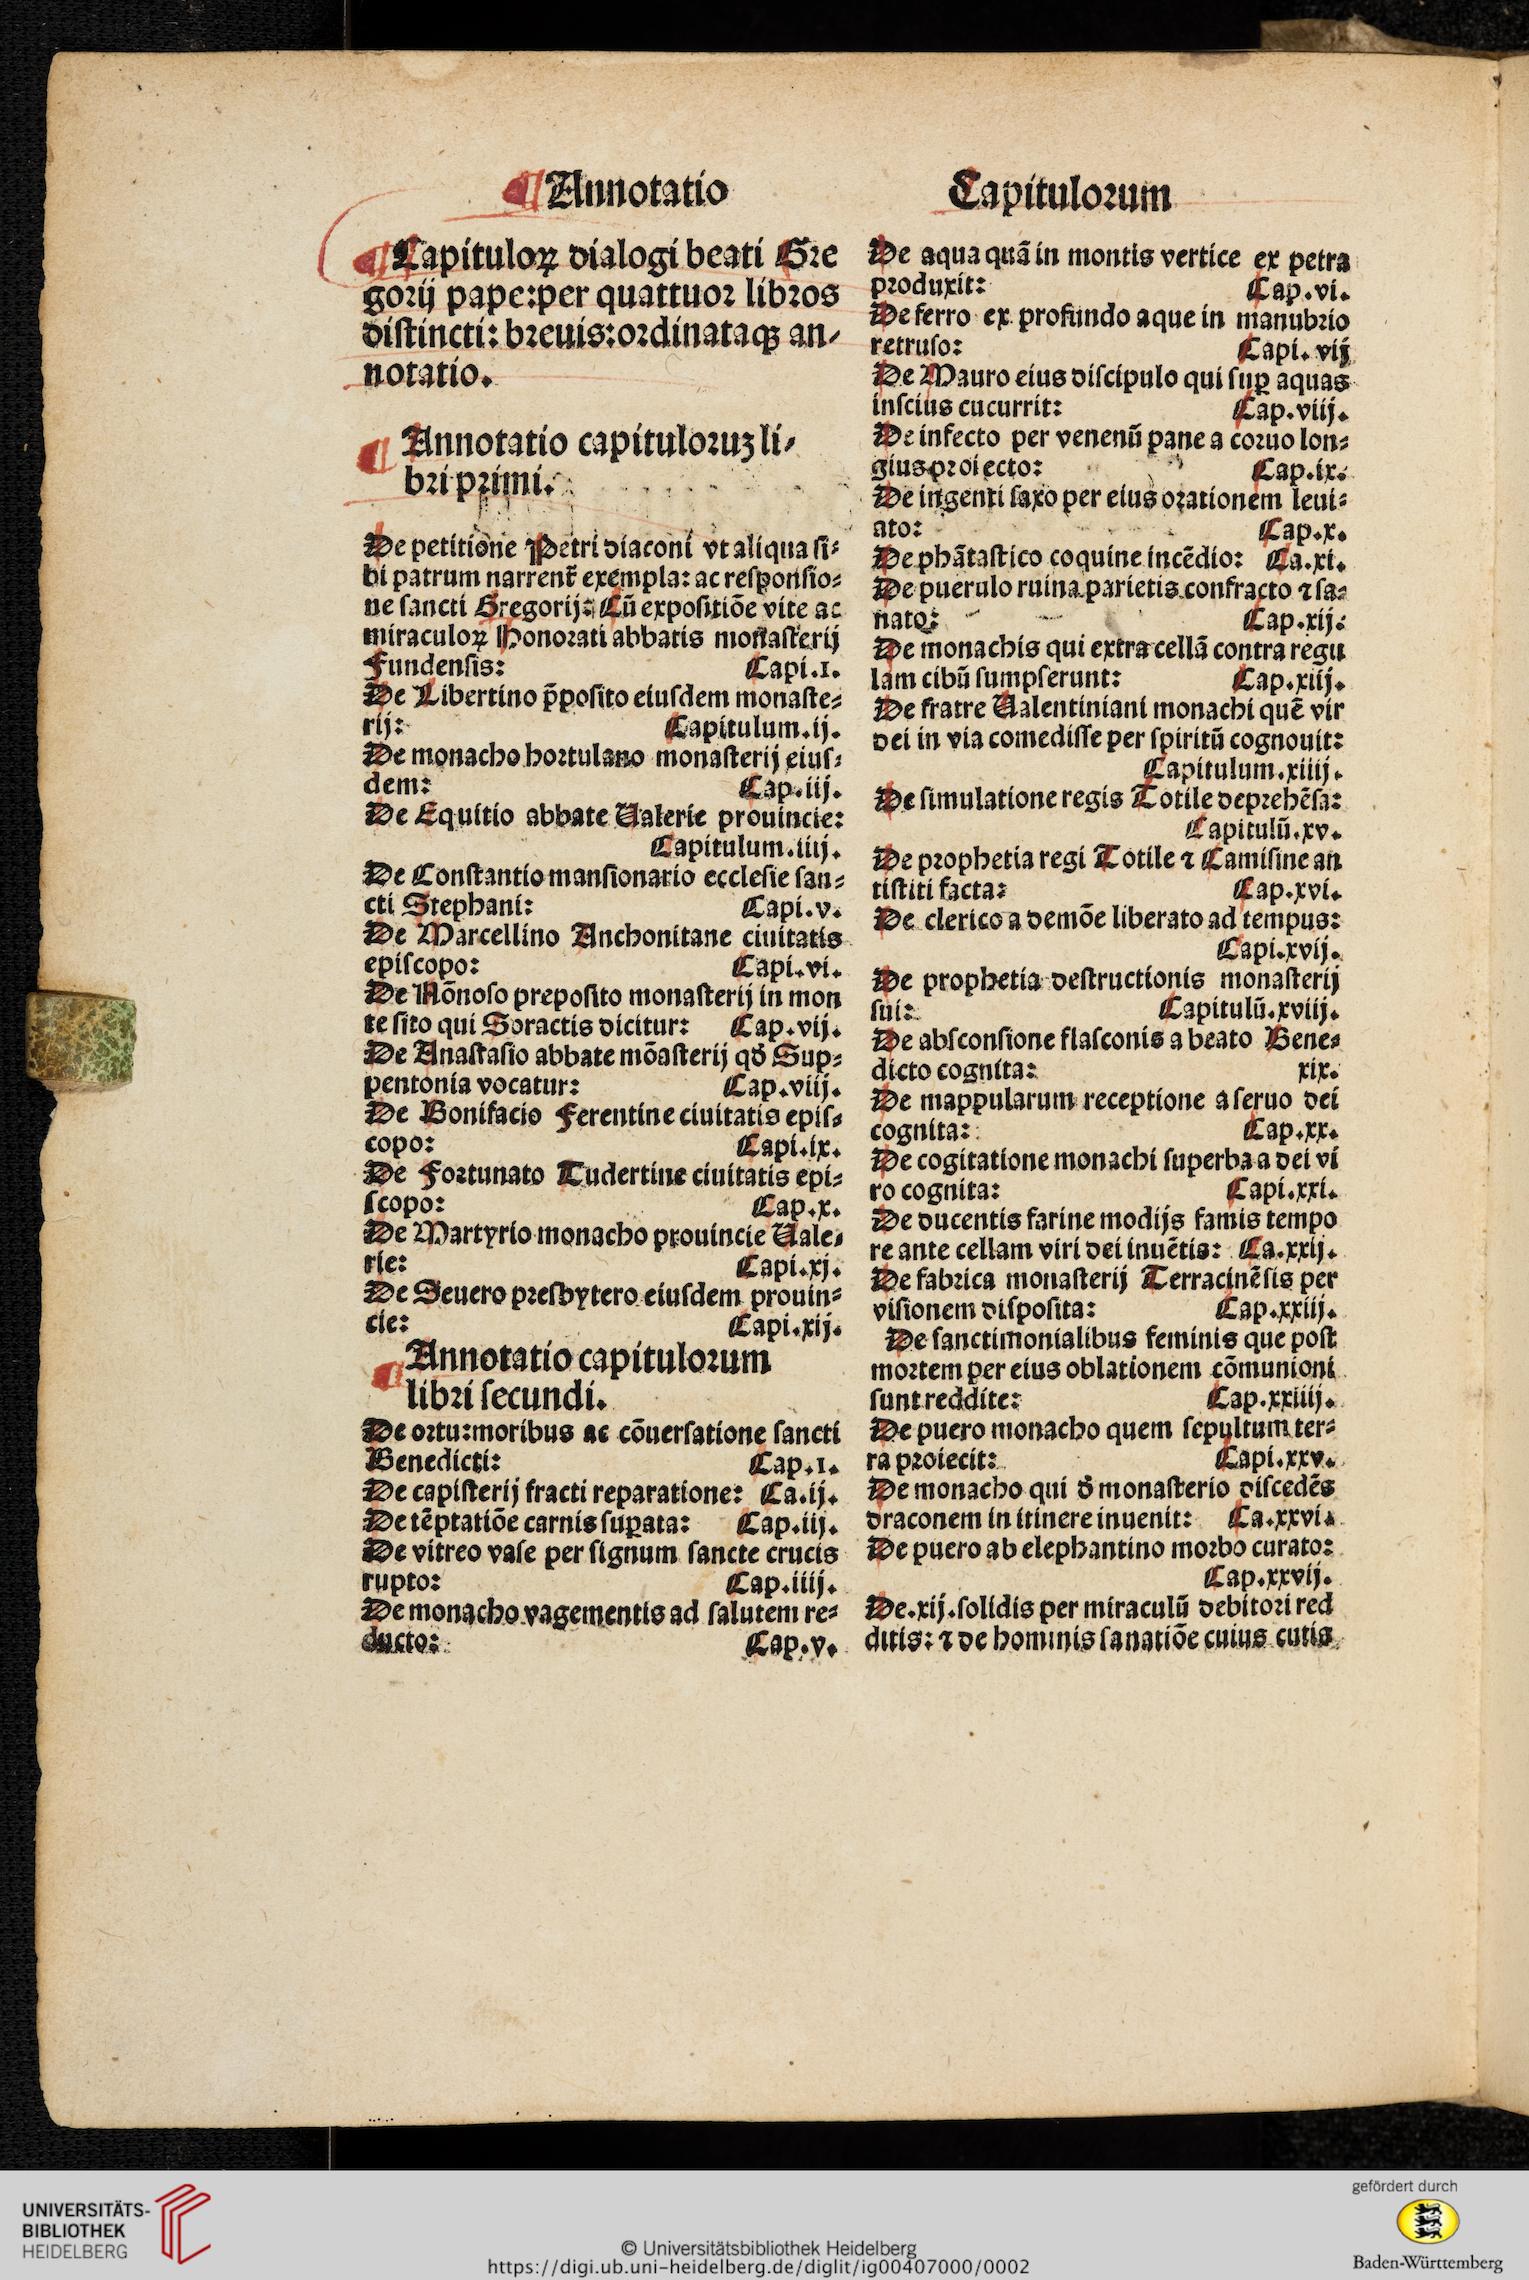 ¶ Annotatio
Capitulorum
¶ Capituloꝝ dialogi beati Gre
gorij pape: per quattuor libros
diſtincti: breuis: ordinataqꝫ an-
notatio.
¶ Annotatio capituloruꝫ li-
bri primi.
De petitione Petri diaconi vt aliqua ſi-
bi patrum narrent᷑ exempla: ac reſponſio-
ne ſancti Gregorij: Cū expoſitiōe vite ac
miraculoꝝ Honorati abbatis monaſterij
Fundenſis: Capi.i.
De Libertino p̄poſito eiuſdem monaſte-
rij: Capitulum.ij.
De monacho hortulano monaſterij eiuſ-
dem: Cap.iij.
De Equitio abbate Ualerie prouincie:
Capitulum.iiij.
De Conſtantio manſionario eccleſie ſan-
cti Stephani: Capi.v.
De Marcellino Anchonitane ciuitatis
epiſcopo: Capi.vi.
De Nōnoſo prepoſito monaſterij in mon
te ſito qui Soractis dicitur: Cap.vij.
De Anaſtaſio abbate mōaſterij qď Sup-
pentonia vocatur: Cap.viij.
De Bonifacio Ferentine ciuitatis epiſ-
copo: Capi.ix.
De Fortunato Tudertine ciuitatis epi-
ſcopo: Cap.x.
De Martyrio monacho prouincie Uale-
rie: Capi.xj.
De Seuero preſbytero eiuſdem prouin-
cie: Capi.xij.
¶ Annotatio capitulorum
libri ſecundi.
De ortu: moribus ac cōuerſatione ſancti
Benedicti: Cap.i.
De capiſterij fracti reparatione: Ca.ij.
De tēptatiōe carnis ſuꝑata: Cap.iij.
De vitreo vaſe per ſignum ſancte crucis
rupto: Cap.iiij.
De monacho vagementis ad ſalutem re-
ducto: Cap.v.
De aqua quā in montis vertice ex petra
produxit: Cap.vi.
De ferro ex profundo aque in manubrio
retruſo: Capi.vij
De Mauro eius diſcipulo qui ſuꝑ aquas
inſcius cucurrit: Cap.viij.
De infecto per venenū pane a coruo lon-
gius proiecto: Cap.ix.
De ingenti ſaxo per eius orationem leui-
ato: Cap.x.
De phātaſtico coquine incēdio: Ca.xi.
De puerulo ruina parietis confracto ⁊ ſa-
nato: Cap.xij.
De monachis qui extra cellā contra regu
lam cibū ſumpſerunt: Cap.xiij.
De fratre Ualentiniani monachi quē vir
dei in via comediſſe per ſpiritū cognouit:
Capitulum.xiiij.
De ſimulatione regis Totile deprehēſa:
Capitulū.xv.
De prophetia regi Totile ⁊ Camiſine an
tiſtiti facta: Cap.xvi.
De clerico a demōe liberato ad tempus:
Capi.xvij.
De prophetia deſtructionis monaſterij
ſui: Capitulū.xviij.
De abſconſione flaſconis a beato Bene-
dicto cognita: xix.
De mappularum receptione a ſeruo dei
cognita: Cap.xx.
De cogitatione monachi ſuperba a dei vi
ro cognita: Capi.xxi.
De ducentis farine modijs famis tempo
re ante cellam viri dei inuētis: Ca.xxij.
De fabrica monaſterij Terracinēſis per
viſionem diſpoſita: Cap.xxiij.
De ſanctimonialibus feminis que poſt
mortem per eius oblationem cōmunioni
ſunt reddite: Cap.xxiiij.
De puero monacho quem ſepultum ter-
ra proiecit: Capi.xxv.
De monacho qui ď monaſterio diſcedēs
draconem in itinere inuenit: Ca.xxvi.
De puero ab elephantino morbo curato:
Cap.xxvij.
De.xij.ſolidis per miraculū debitori red
ditis: ⁊ de hominis ſanatiōe cuius cutis
UNIVERSITÄTS-
BIBLIOTHEK
HEIDELBERG
© Universitätsbibliothek Heidelberg
https://digi.ub.uni-heidelberg.de/diglit/ig00407000/0002
gefördert durch
Baden-Württemberg